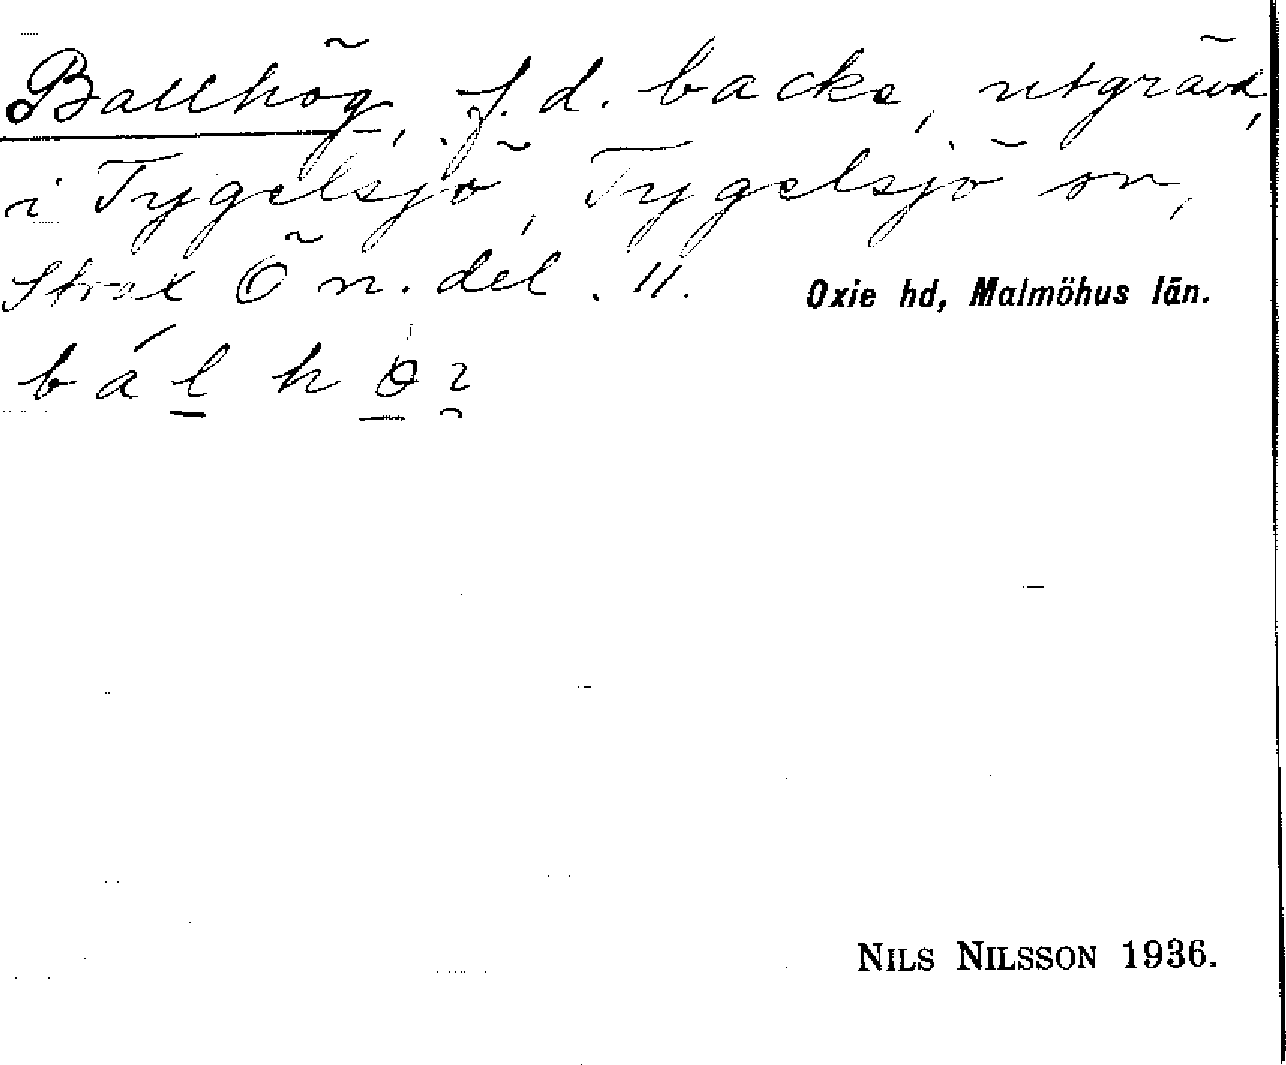 Ballhög, f.d. backe, utgrävd,
i Tygelsjö, Tygelsjö sn,
Strax Ö n. del. 11. Oxie hd, Malmöhus län.
bálhör
NILS NILSSON 1936.